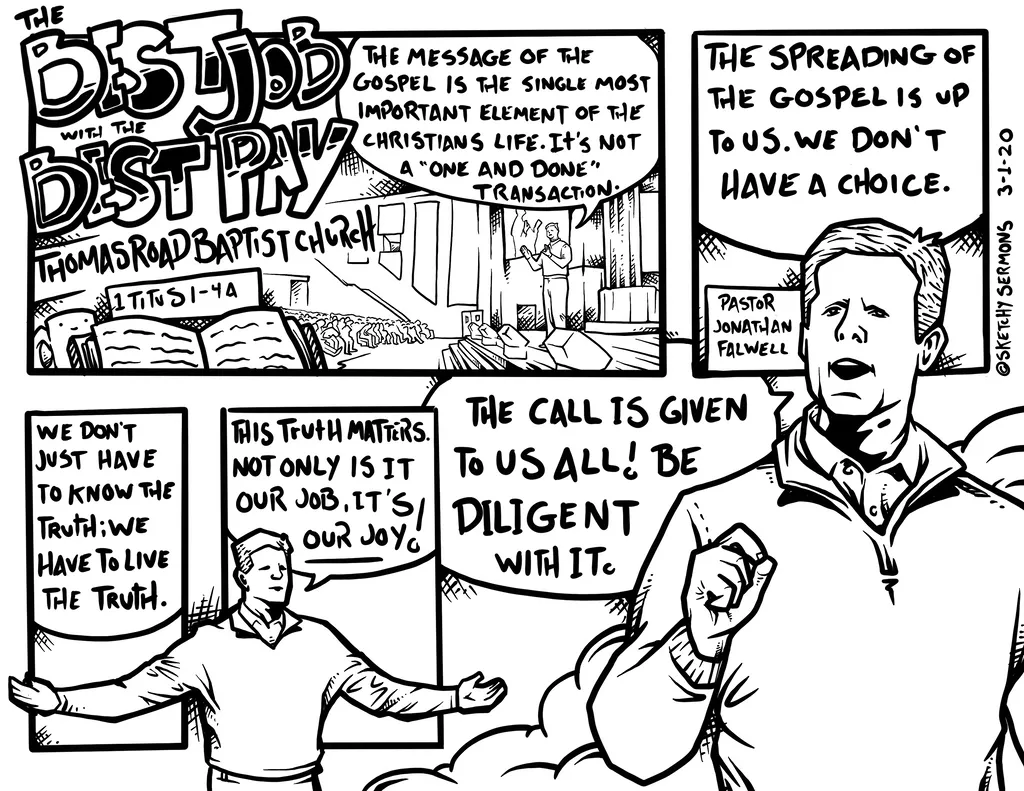 THE
BEST JOB
WITH THE
BEST PAY
THOMAS ROAD BAPTIST CHURCH
1 TITUS 1-4A
THE MESSAGE OF THE
GOSPEL IS THE SINGLE MOST
IMPORTANT ELEMENT OF THE
CHRISTIANS LIFE. IT'S NOT
A "ONE AND DONE"
TRANSACTION.
THE SPREADING OF
THE GOSPEL IS UP
TO US. WE DON'T
HAVE A CHOICE.
PASTOR
JONATHAN
FALWELL
@SKETCHYSERMONS 3-1-20
WE DON'T
JUST HAVE
TO KNOW THE
TRUTH; WE
HAVE TO LIVE
THE TRUTH.
THIS TRUTH MATTERS.
NOT ONLY IS IT
OUR JOB, IT'S
OUR JOY!
THE CALL IS GIVEN
TO US ALL! BE
DILIGENT
WITH IT.